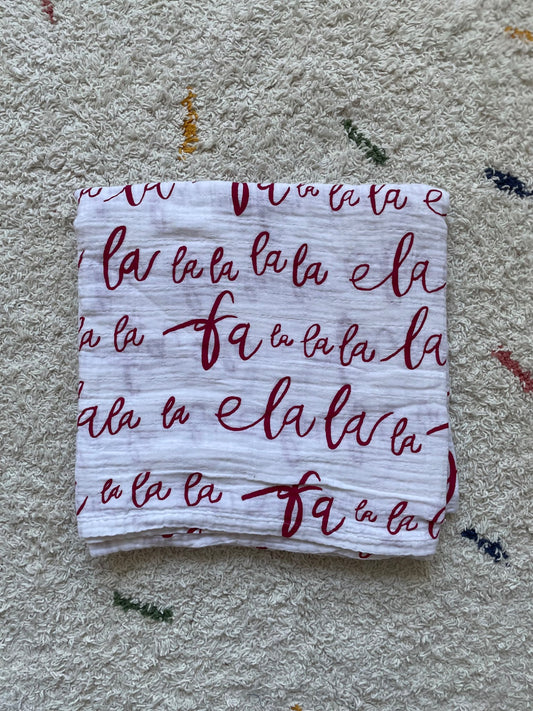 la fa la la la
la la la la la la
la la fa la la la la
la la la la la
la la la fa la la la